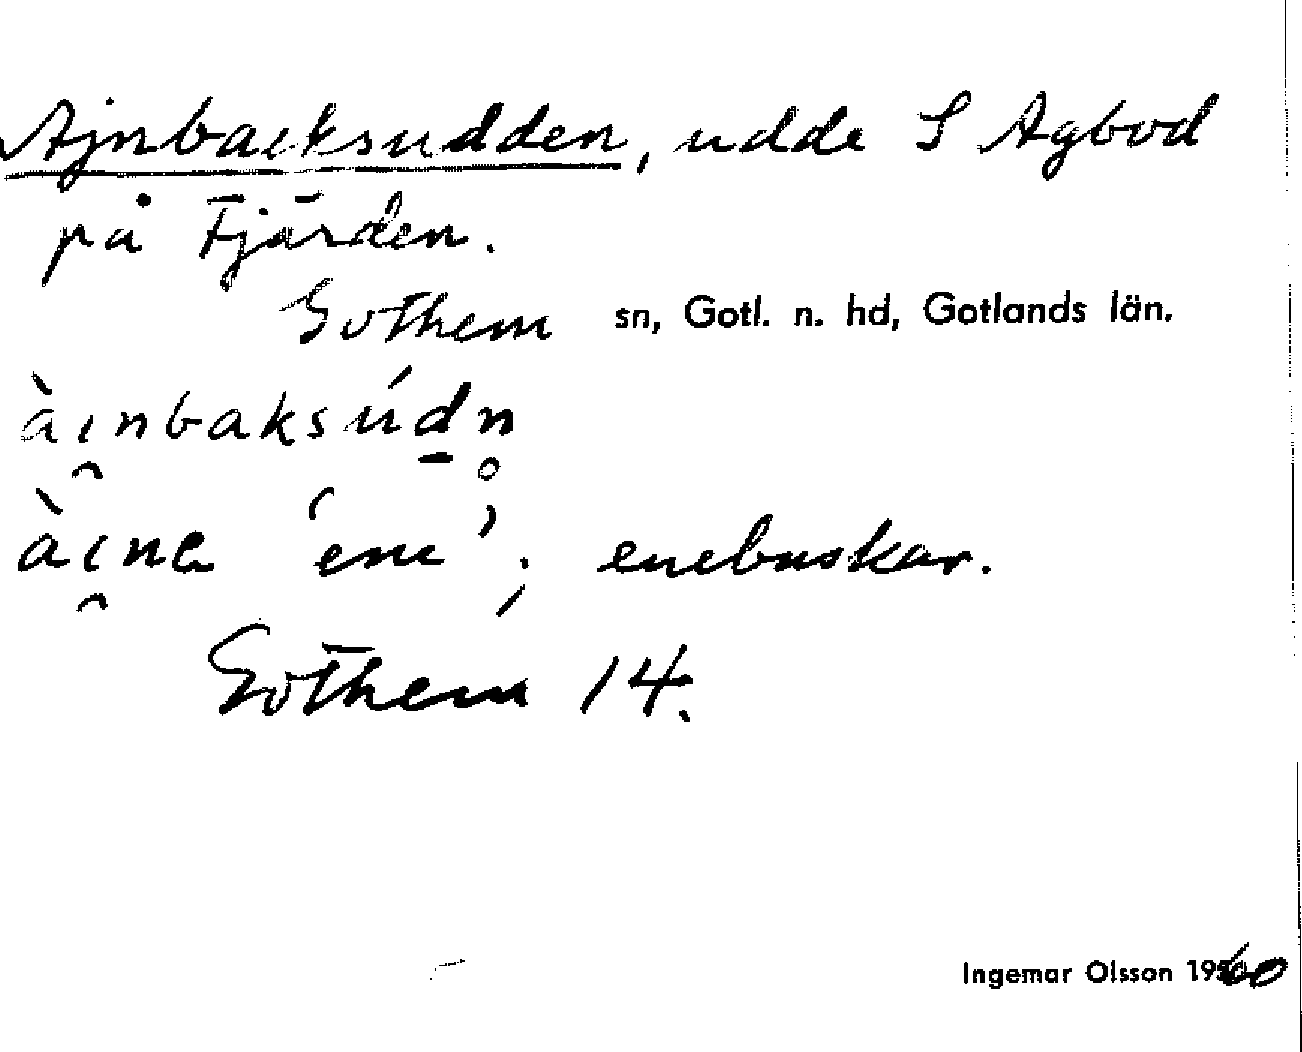 Ajnbacksudden, udde S Agbod
på Fjärden.
Gothem sn, Gotl. n. hd, Gotlands län.
àı̯nbaksúd̲n̥
àı̯nɐ 'ene'; enebuskar.
Gothem 14.
Ingemar Olsson 1960